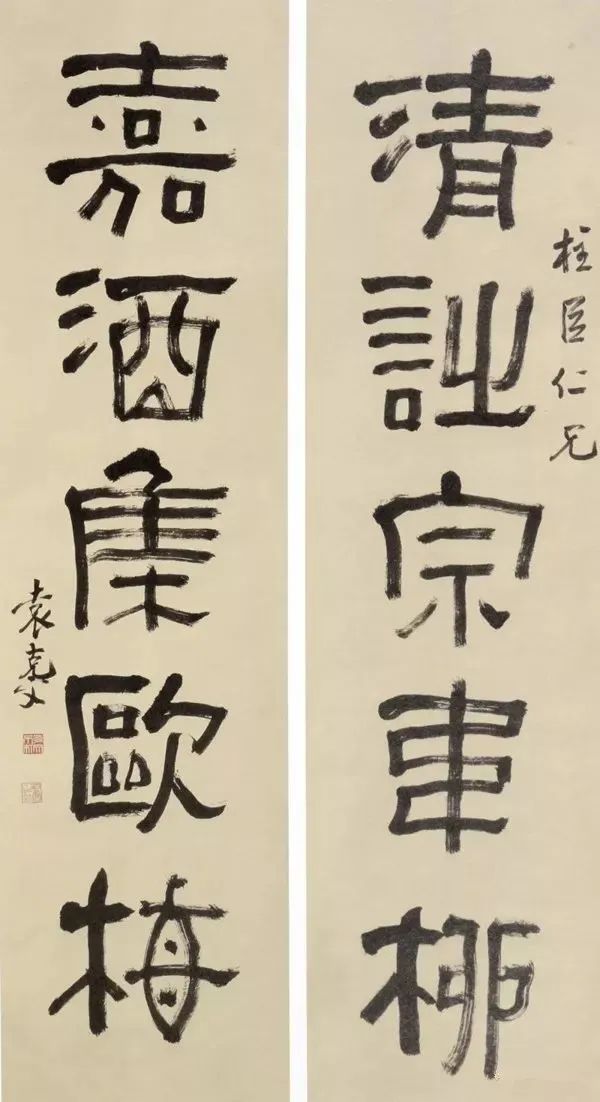 清詩宗韋柳
柱臣仁兄
嘉酒集歐梅
袁克文